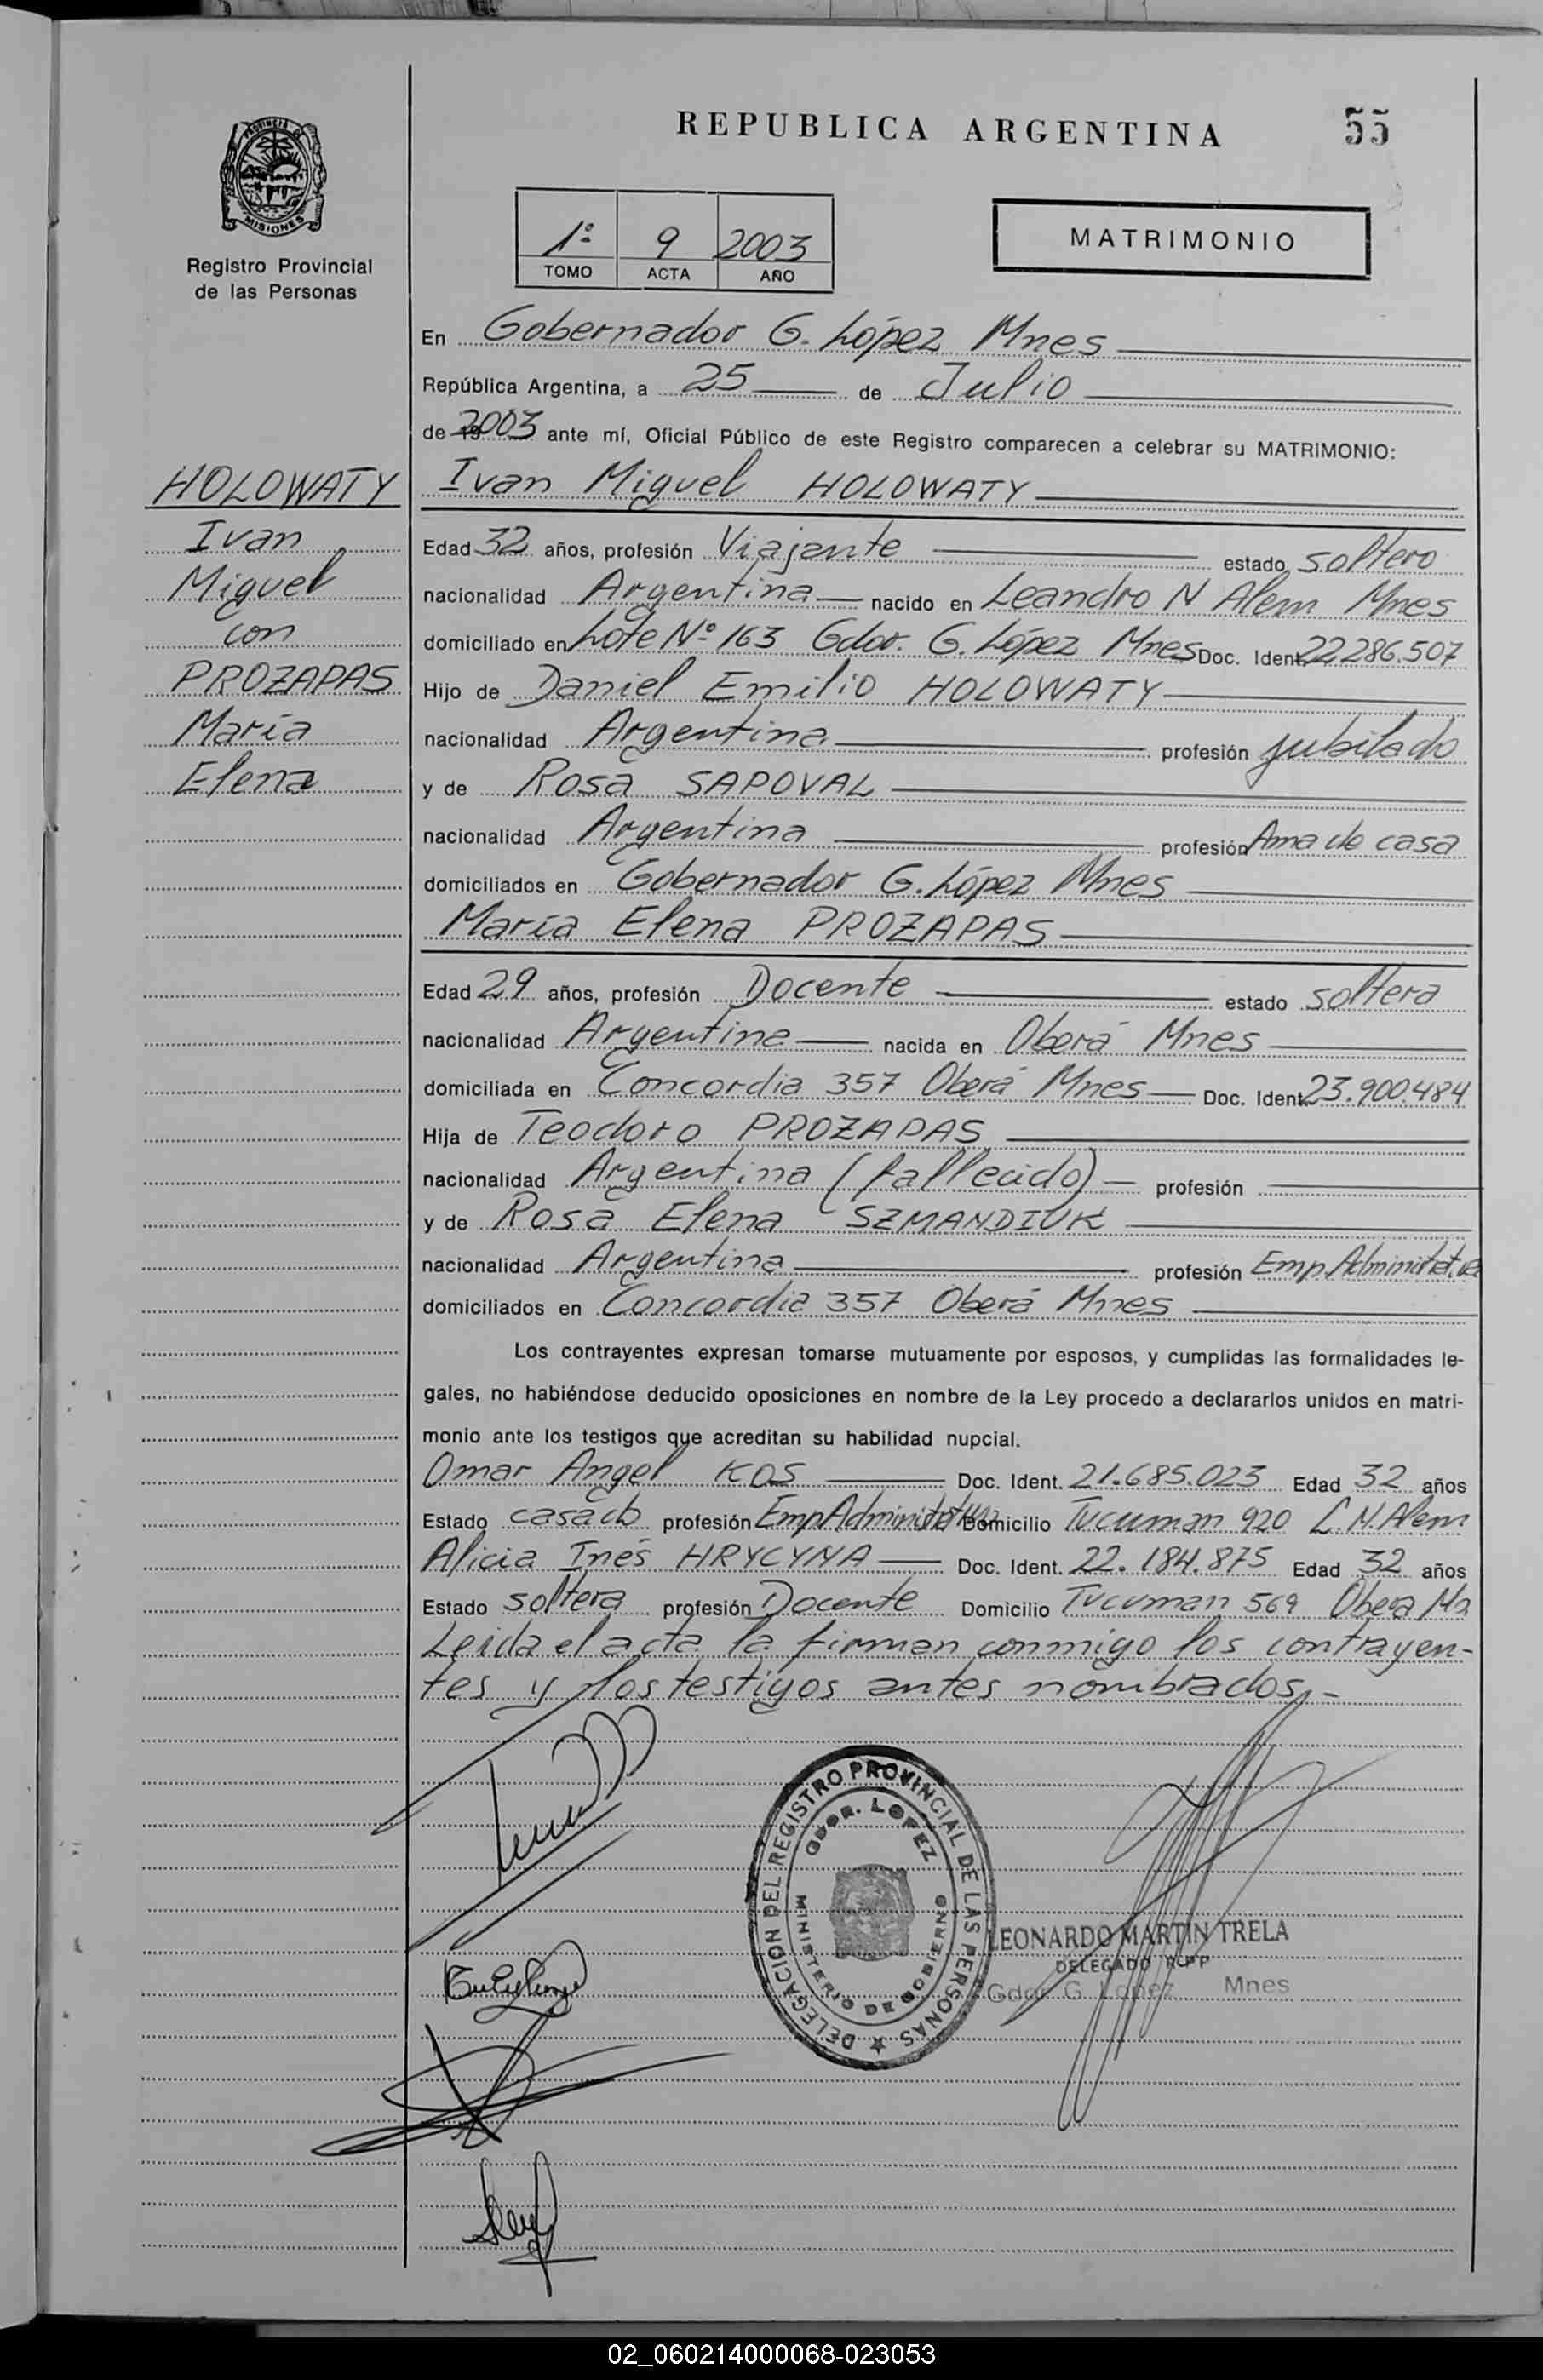 REPUBLICA ARGENTINA 55
PROVINCIA DE
MISIONES
Registro Provincial
de las Personas
1º 9 2003
TOMO ACTA AÑO
MATRIMONIO
En Gobernador G. López Mnes
República Argentina, a 25 de Julio
de 2003 ante mí, Oficial Público de este Registro comparecen a celebrar su MATRIMONIO:
HOLOWATY
Ivan
Miguel
con
PROZAPAS
María
Elena
Ivan Miguel HOLOWATY
Edad 32 años, profesión Viajante estado soltero
nacionalidad Argentina nacido en Leandro N Alem Mnes
domiciliado en Lote Nº 163 Gdor. G. López Mnes Doc. Ident. 22.286.507
Hijo de Daniel Emilio HOLOWATY
nacionalidad Argentina profesión jubilado
y de Rosa SAPOVAL
nacionalidad Argentina profesión Ama de casa
domiciliados en Gobernador G. López Mnes
María Elena PROZAPAS
Edad 29 años, profesión Docente estado soltera
nacionalidad Argentina nacida en Oberá Mnes
domiciliada en Concordia 357 Oberá Mnes Doc. Ident. 23.900.484
Hija de Teodoro PROZAPAS
nacionalidad Argentina (fallecido) profesión
y de Rosa Elena SZMANDIUK
nacionalidad Argentina profesión Emp. Administrativa
domiciliados en Concordia 357 Oberá Mnes
Los contrayentes expresan tomarse mutuamente por esposos, y cumplidas las formalidades le-
gales, no habiéndose deducido oposiciones en nombre de la Ley procedo a declararlos unidos en matri-
monio ante los testigos que acreditan su habilidad nupcial.
Omar Angel KOS Doc. Ident. 21.685.023 Edad 32 años
Estado casado profesión Emp Administrativo Domicilio Tucuman 920 L.N.Alem
Alicia Inés HRYCYNA Doc. Ident. 22.184.875 Edad 32 años
Estado soltera profesión Docente Domicilio Tucuman 569 Obera Mn
Leida el acta la firman conmigo los contrayen-
tes y los testigos antes nombrados.-
DELEGACION DEL REGISTRO PROVINCIAL DE LAS PERSONAS
GDOR. LOPEZ
MINISTERIO DE GOBIERNO
LEONARDO MARTIN TRELA
DELEGADO R.P.P
Gdor G. Lopez Mnes
02_060214000068-023053